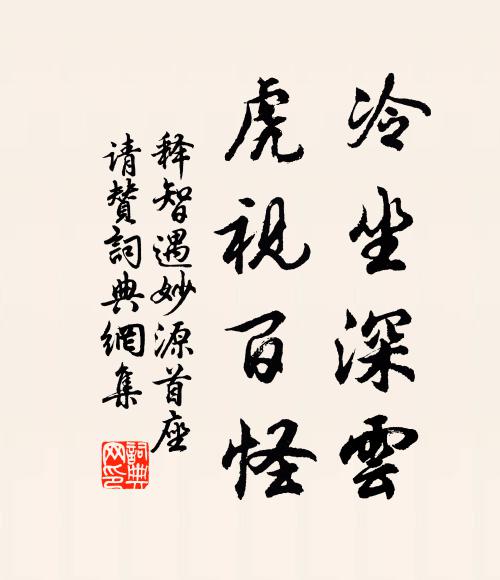 冷坐深雲
虎視百怪
释智遇妙源首座
请赞詞典網集
詞典
网印